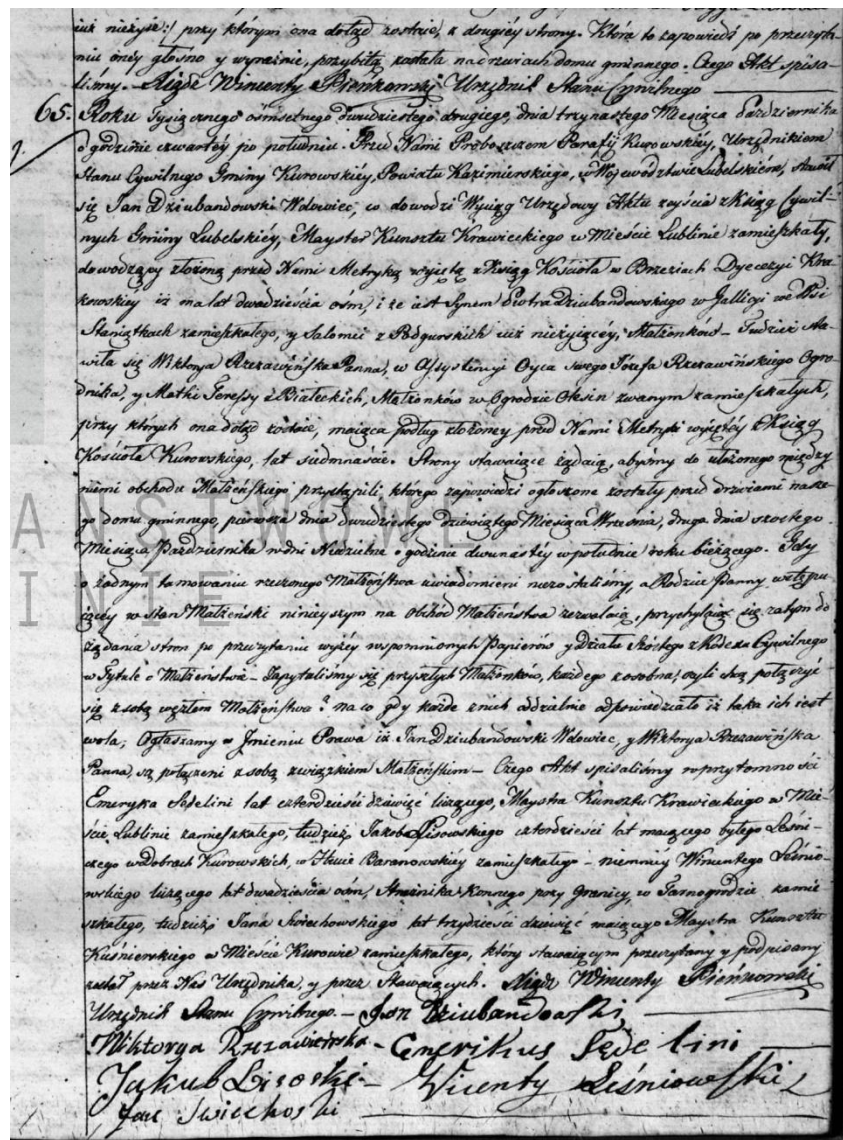 iuż nieżyie:/ przy którym ona dotąd zostaie, z drugiéy strony. Która to zapowiedź po przeczyta-
niu onéy głośno y wyraźnie, przybitą została na drzwiach domu gminnego. Czego Akt spisa-
liśmy. Xiądz Wincenty Pieńkowski Urzędnik Stanu Cywilnego
65. Roku Tysiącznego ośmsetnego dwudziestego drugiego, dnia trzynastego Miesiąca Października
o godzinie czwartéy po południu. Przed Nami Proboszczem Parafy Kurowskiéy, Urzędnikiem
Stanu Cywilnego Gminy Kurowskiéy, Powiatu Kazimirskiego, w Woiewodztwie Lubelskiém, stawił
się Jan Dziubandowski Wdowiec, co dowodzi Wyciąg Urzędowy Aktu zeyścia z Ksiąg Cywil-
nych Gminy Lubelskiéy, Maystor Kunsztu Krawieckiego w Mieście Lublinie zamieszkały,
dowodzący złożoną przed Nami Metryką wyiętą z Ksiąg Kościoła w Brzeziach Dyecezyi Kra-
kowskiey iż ma lat dwadzieścia ośm, i że iest Synem Piotra Dziubandowskiego w Gallicyi we Wsi
Staniątkach zamieszkałego, y Salomei z Podgurskich iuż nieżyiącéy, Małżonków - Tudzież sta-
wiła się Wiktorya Rzezawińska Panna, w Assystencyi Oyca swego Józefa Rzezawińskiego Ogro-
dnika, y Matki Teressy z Białeckich, Małżonków w Ogrodzie Olesin zwanym zamieszkałych,
przy których ona dotąd zostaie, maiąca podług złożoney przed Nami Metryki wyiętéy z Ksiąg
Kościoła Kurowskiego, lat siedmnaście. Strony stawaiące żądaią, abyśmy do ułożonego między
niemi obchodu Małżeńskiego przystąpili, którego zapowiedzi ogłoszone zostały przed drzwiami nasze-
go domu gminnego, pierwsza dnia dwudziestego dziewiątego Miesiąca Września, druga dnia szóstego
Miesiąca Października w dni Niedzielne o godzinie dwunastéy w południe roku bieżącego. Gdy
o żadnym tamowaniu rzeczonego Małżeństwa uwiadomieni niezostaliśmy, a Rodzice Panny wstępu-
iącéy w stan Małżeński ninieyszym na obchód Małżeństwa zezwalaią, przychylaiąc się zatym do
żądania stron po przeczytaniu wyżéy wspomnionych Papierów y Działu Szóstego z Kodexu Cywilnego
w Tytule o Małżeństwie - Zapytaliśmy się przyszłych Małżonków, każdego z osobna, czyli chcą połączyć
się z sobą węzłem Małżeństwa? na co gdy każde z nich oddzielnie odpowiedziało iż taka ich iest
wola; Ogłaszamy w Imieniu Prawa iż Jan Dziubandowski Wdowiec, y Wiktorya Rzezawińska
Panna, są połączeni z sobą związkiem Małżeńskim - Czego Akt spisaliśmy w przytomności
Emeryka Sedelini lat czterdzieści dziewięć liczącego, Maystra Kunsztu Krawieckiego w Mie-
ście Lublinie zamieszkałego, tudzież Jakoba Lisowskiego czterdzieści lat maiącego byłego Leśni-
czego w dobrach Kurowskich, w Hucie Baranowskiéy zamieszkałego - niemniey Wincentego Leśnio-
wskiego liczącego lat dwadzieścia ośm, Strażnika Konnego przy Granicy, w Tarnogrodzie zamie-
szkałego, tudzież Jana Świechowskiego lat trzydzieści dziewięć maiącego Maystra Kunsztu
Kuśnierskiego w Mieście Kurowie zamieszkałego, który stawaiącym przeczytany y podpisany
został przez Nas Urzędnika, y przez Stawaiących. Xiądz Wincenty Pieńkowski
Urzędnik Stanu Cywilnego. - Jan Dziubandowski
Wiktorya Rzezawieńska - Emerikus Sedelini
Jakub Lisoski - Wicenty Leśniowski
Jan Swiechoski
ANSTWOWE
INIE